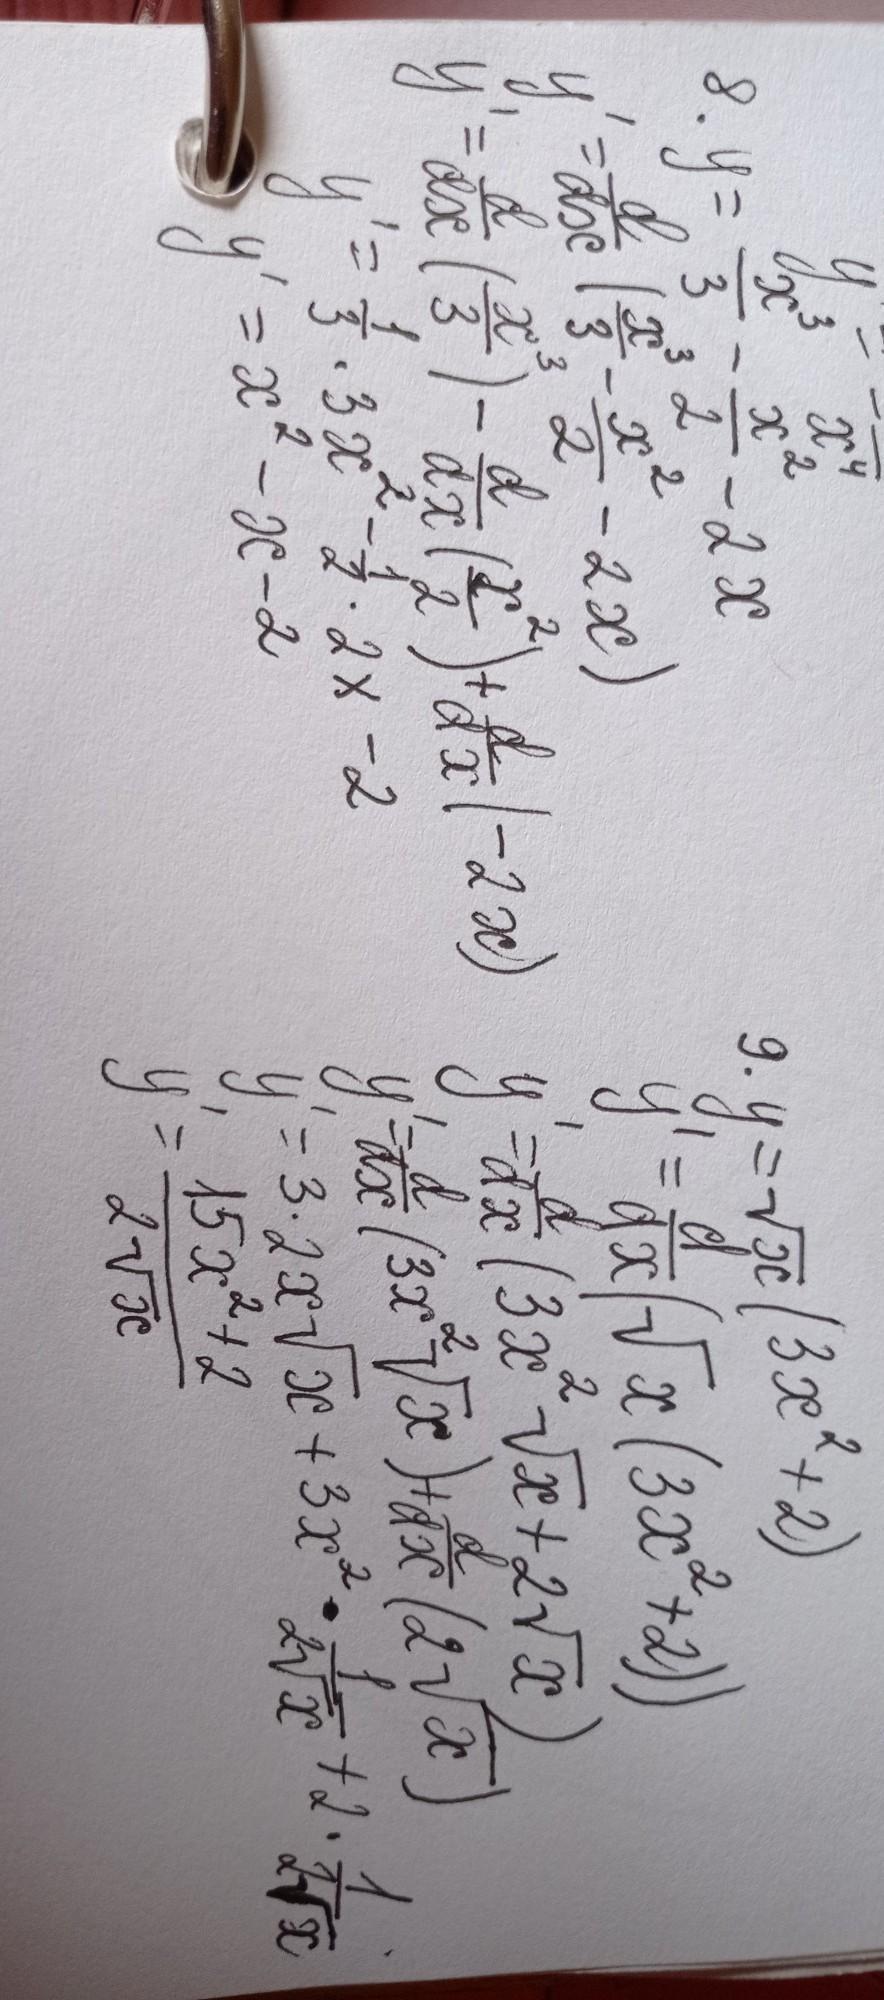 y' = - x⁴
8. y = x³/3 - x²/2 - 2x
y' = d/dx (x³/3 - x²/2 - 2x)
y' = d/dx (x³/3) - d/dx (x²/2) + d/dx (-2x)
y' = 1/3 · 3x² - 1/2 · 2x - 2
y' = x² - x - 2
9. y = √x (3x² + 2)
y' = d/dx (√x (3x² + 2))
y' = d/dx (3x² √x + 2√x)
y' = d/dx (3x² √x) + d/dx (2√x)
y' = 3 · 2x√x + 3x² · 1/2√x + 2 · 1/2√x
y' = 15x² + 2 / 2√x